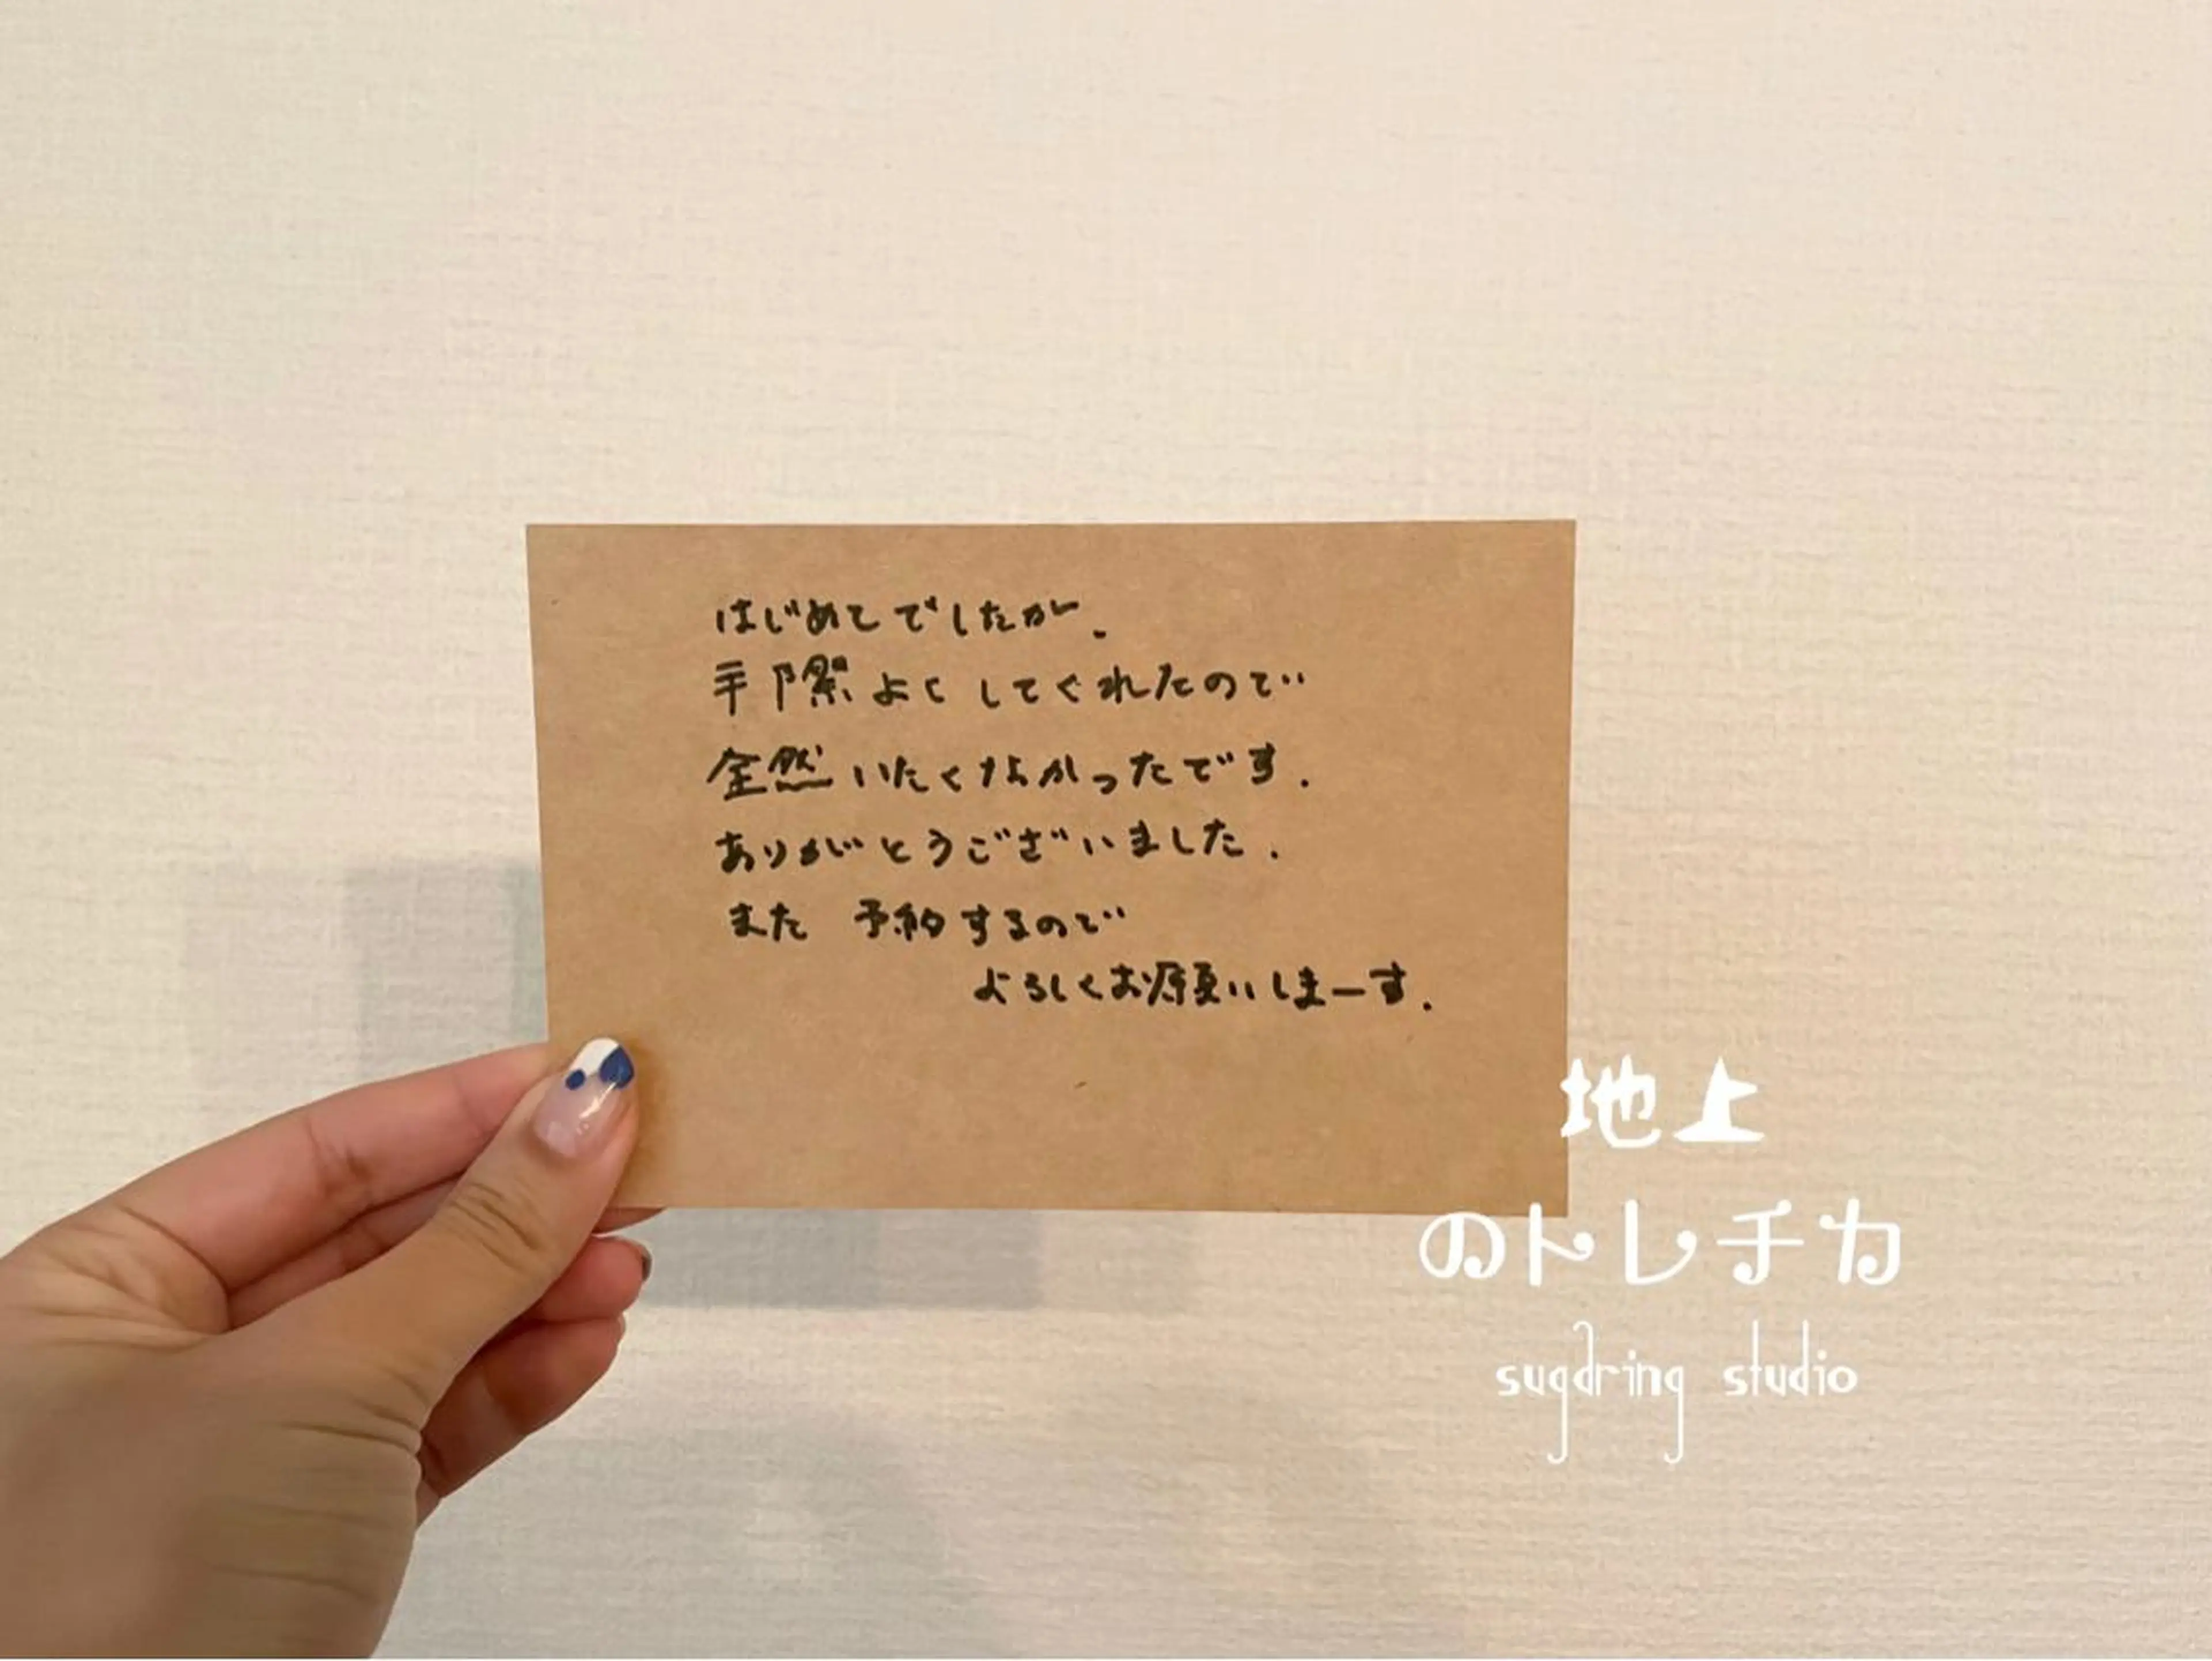 はじめてでしたが.
手際よくしてくれたので
全然いたくなかったです.
ありがとうございました.
また 予約するので
よろしくお願いしまーす.
地上
のトレチカ
sugdring studio